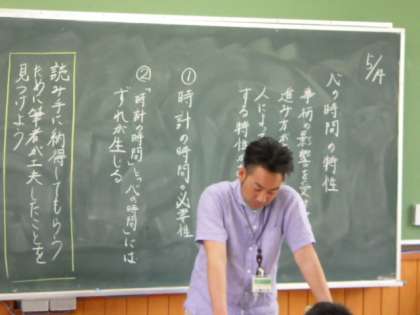 5/7
心の時間の特性
事柄の影響を受
進み方が
人によ
する特性
① 時計の時間の必要性
② 「時計の時間」と「心の時間」には
ずれが生じる
読み手に納得してもらう
ために筆者が工夫したことを
見つけよう